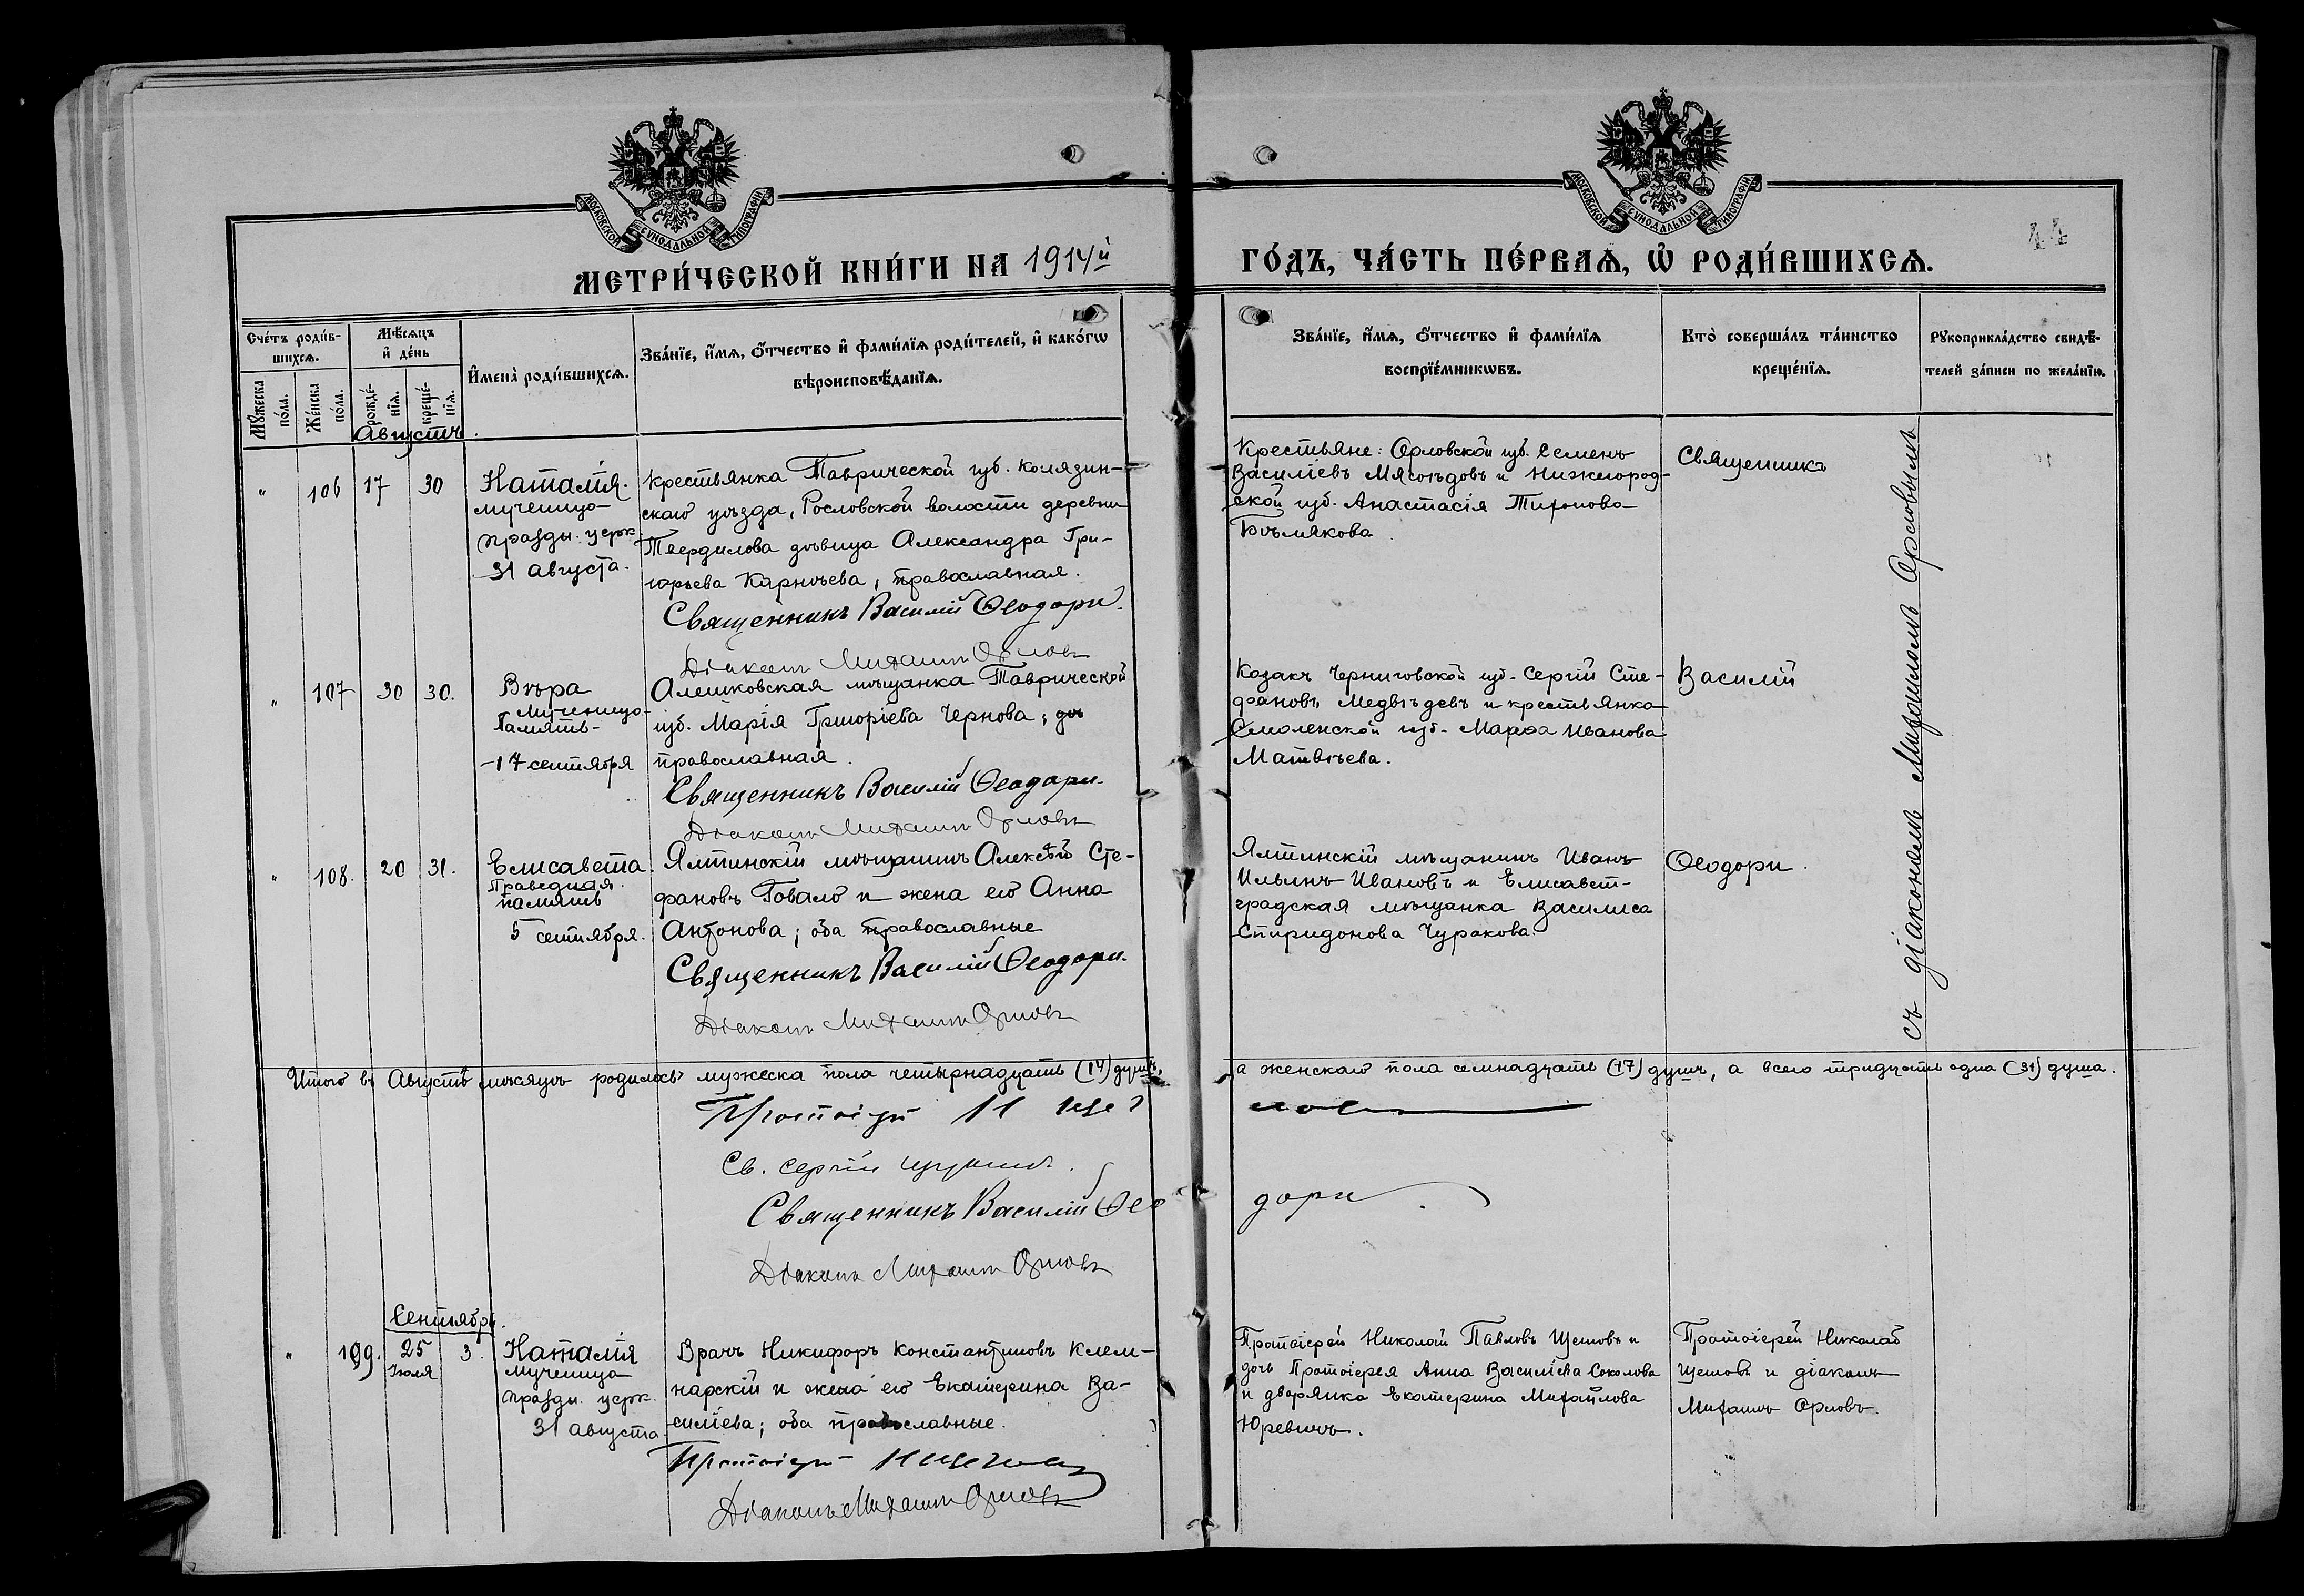 МОСКОВСКОЙ СѴНОДАЛЬНОЙ ТИПОГРАФІИ
МОСКОВСКОЙ СѴНОДАЛЬНОЙ ТИПОГРАФІИ
44
МЕТРИ́ЧЕСКОЙ КНИ́ГИ НА 1914й ГО́ДЪ, ЧА́СТЬ ПЕ́РВАѦ, Ѡ РОДИ́ВШИХСѦ.
Сче́тъ роди́в-
шихсѧ.
Мꙋжеска по́ла.
Же́нска по́ла.
Мѣ́сѧцъ
и де́нь
рожде́-
нїѧ.
креще́-
нїѧ.
Имена̀ роди́вшихсѧ.
Зва́нїе, и́мѧ, ѻ́тчество и фами́лїѧ роди́телей, и како́гѡ
вѣроисповѣ́данїѧ.
Зва́нїе, и́мѧ, ѻ́тчество и фами́лїѧ
воспрїе́мникѡвъ.
Кто̀ соверша́лъ та́инство
креще́нїѧ.
Рꙋкоприкла́дство свидѣ́-
телей за́писи по жела́нїю.
Августъ.
" 106 17 30
Наталія.
мученицо-
праздн. церк.
31 августа.
Крестьянка Таврической губ. Колязин-
скаго уѣзда, Рословской волости деревни
Твердилова дѣвица Александра Гри-
горьева Карнѣева, православная.
Священникъ Василій Ѳеодори.
Діаконъ Михаилъ Орловъ
Крестьяне: Орловской губ. Семенъ
Василіевъ Мясоѣдовъ и Нижегород-
ской губ. Анастасія Тихонова
Бѣлякова.
Священникъ
" 107 30 30.
Вѣра
Мученицо-
Память-
-17 сентября
Алешковская мѣщанка Таврической
губ. Марія Григоріева Чернова; дѣ
православная.
Священникъ Василій Ѳеодори.
Діаконъ Михаилъ Орловъ
Козакъ Черниговской губ. Сергій Сте-
фановъ Медвѣдевъ и крестьянка
Смоленской губ. Марѳа Иванова
Матвѣева.
Василій
" 108. 20 31.
Елисавета.
Праведная.
память
5 сентября.
Ялтинскій мѣщанинъ Алексѣй Сте-
фановъ Говало и жена его Анна
Антонова; оба православные
Священникъ Василій Ѳеодори.
Діаконъ Михаилъ Орловъ
Ялтинскій мѣщанинъ Иванъ
Ильинъ Ивановъ и Елисавет-
градская мѣщанка Василиса
Спиридонова Чуракова.
Ѳеодори.
съ діакономъ Михаиломъ Орловымъ
Итого въ Августѣ мѣсяцѣ родилось мужеска пола четырнадцать (14) душъ, а женскаго пола семнадцать (17) душъ, а всего тридцать одна (31) душа.
Протоіерей Н Щегловъ
Св. Сергій
Священникъ Василій Ѳеодори
Діаконъ Михаилъ Орловъ
Сентябрь.
" 109. 25 3.
Іюля
Наталія
Мученица
праздн. церк.
31 августа.
Врачъ Никифоръ Константиновъ Клем-
нарскій и жена его Екатерина Ва-
силіева; оба православные.
Протоіерей Н Щегловъ
Діаконъ Михаилъ Орловъ
Протоіерей Николай Павловъ Щегловъ и
дочь Протоіерея Анна Василіева Соколова
и дворянка Екатерина Михайлова
Юревичъ.
Протоіерей Николай
Щегловъ и діаконъ
Михаилъ Орловъ.